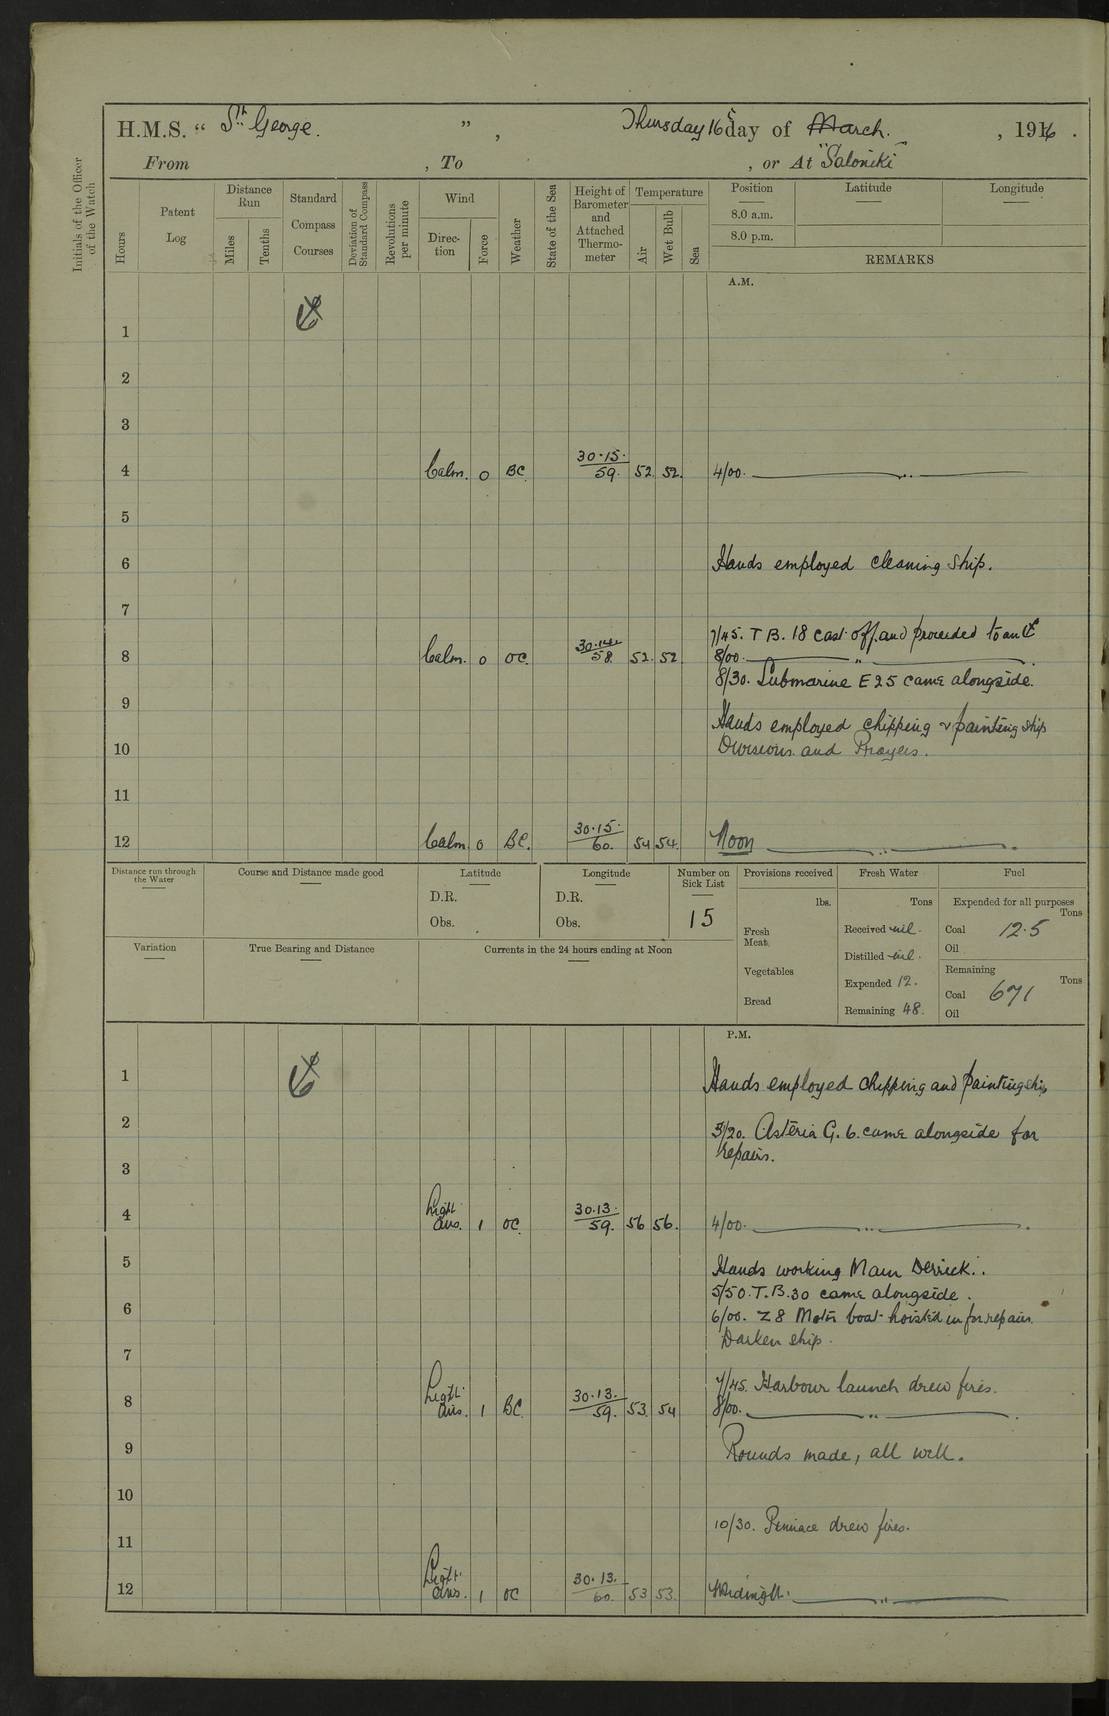 H.M.S. “ St. George. ” , Thursday 16 day of March. , 1916 .
From , To , or At "Saloniki"
Initials of the Officer of the Watch
Hours
Patent Log
Distance Run
Miles
Tenths
Standard Compass Courses
Deviation of Standard Compass
Revolutions per minute
Wind
Direction
Force
Weather
State of the Sea
Height of Barometer and Attached Thermometer
Temperature
Air
Wet Bulb
Sea
Position
8.0 a.m.
8.0 p.m.
Latitude
Longitude
REMARKS
A.M.
1
2
3
4 Calm. 0 BC 30.15. 59. 52 52. 4/00.
5
6 Hands employed cleaning ship.
7
7/45. T B. 18 cast off and proceeded to
8 Calm. 0 OC. 30.14. 58. 52. 52 8/00. "
8/30. Submarine E 25 came alongside.
9
Hands employed chipping & painting ship
10 Divisions and Prayers.
11
12 Calm 0 BC. 30.15. 60. 54 54. Noon "
Distance run through the Water
Course and Distance made good
Latitude
D.R.
Obs.
Longitude
D.R.
Obs.
Number on Sick List
15
Provisions received
lbs.
Fresh Meat
Vegetables
Bread
Fresh Water
Tons
Received nil.
Distilled nil.
Expended 12.
Remaining 48.
Fuel
Expended for all purposes
Tons
Coal 12.5
Oil
Remaining
Tons
Coal 671
Oil
Variation
True Bearing and Distance
Currents in the 24 hours ending at Noon
P.M.
1 Hands employed chipping and painting ship
2 3/20. Asteria G. 6. came alongside for
repairs.
3
4 Light airs. 1 OC 30.13. 59. 56 56. 4/00. "
5 Hands working Main Derrick.
5/50. T.B. 30 came alongside.
6 6/00. Z 8 Motor boat hoisted in for repairs.
Darken ship.
7
7/45. Harbour launch drew fires.
8 Light airs. 1 BC 30.13. 59. 53. 54 8/00. "
9 Rounds made, all well.
10
10/30. Pinnace drew fires.
11
12 Light airs. 1 OC 30.13. 60. 53 53. Midnight. "